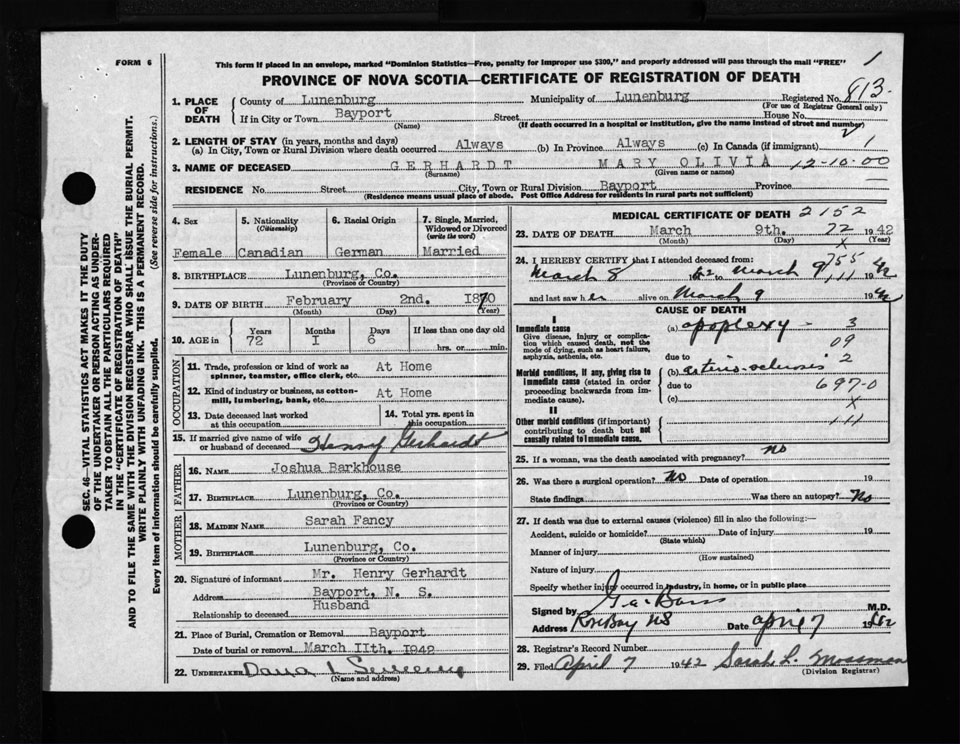 FORM 6
This form if placed in an envelope, marked "Dominion Statistics—Free, penalty for improper use $300," and properly addressed will pass through the mail "FREE" 1
PROVINCE OF NOVA SCOTIA—CERTIFICATE OF REGISTRATION OF DEATH
SEC. 46—VITAL STATISTICS ACT MAKES IT THE DUTY
OF THE UNDERTAKER OR PERSON ACTING AS UNDER-
TAKER TO OBTAIN ALL THE PARTICULARS REQUIRED
IN THE "CERTIFICATE OF REGISTRATION OF DEATH"
AND TO FILE THE SAME WITH THE DIVISION REGISTRAR WHO SHALL ISSUE THE BURIAL PERMIT.
WRITE PLAINLY WITH UNFADING INK. THIS IS A PERMANENT RECORD.
Every item of Information should be carefully supplied. (See reverse side for instructions.)
1. PLACE OF DEATH County of Lunenburg Municipality of Lunenburg Registered No. 813
(For use of Registrar General only)
If in City or Town Bayport Street House No.
(Name) (If death occurred in a hospital or institution, give the name instead of street and number)
2. LENGTH OF STAY (in years, months and days)
(a) In City, Town or Rural Division where death occurred Always (b) In Province Always (c) In Canada (if immigrant) 1
3. NAME OF DECEASED GERHARDT MARY OLIVIA 12-10-00
(Surname) (Given name or names)
RESIDENCE No. Street City, Town or Rural Division Bayport Province
(Residence means usual place of abode. Post Office Address for residents in rural parts not sufficient)
4. Sex 5. Nationality (Citizenship) 6. Racial Origin 7. Single, Married, Widowed or Divorced (write the word)
Female Canadian German Married
8. BIRTHPLACE Lunenburg, Co.
(Province or Country)
9. DATE OF BIRTH February 2nd. 1870
(Month) (Day) (Year)
10. AGE in Years Months Days If less than one day old
72 I 6 hrs. or min.
OCCUPATION
11. Trade, profession or kind of work as spinner, teamster, office clerk, etc. At Home
12. Kind of industry or business, as cotton-mill, lumbering, bank, etc. At Home
13. Date deceased last worked at this occupation 14. Total yrs. spent in this occupation
15. If married give name of wife or husband of deceased Henry Gerhardt
FATHER
16. NAME Joshua Barkhouse
17. BIRTHPLACE Lunenburg, Co.
(Province or Country)
MOTHER
18. MAIDEN NAME Sarah Fancy
19. BIRTHPLACE Lunenburg, Co.
(Province or Country)
20. Signature of informant Mr. Henry Gerhardt
Address Bayport, N. S.
Relationship to deceased Husband
21. Place of Burial, Cremation or Removal Bayport
Date of burial or removal March IIth. 1942
22. UNDERTAKER
(Name and address)
MEDICAL CERTIFICATE OF DEATH 2152
23. DATE OF DEATH March 9th. 72 1942
(Month) (Day) X (Year)
24. I HEREBY CERTIFY that I attended deceased from:
March 8 1942 to March 9 1942
and last saw her alive on March 9 1942
CAUSE OF DEATH
I
Immediate cause
Give disease, injury or complication which caused death, not the mode of dying, such as heart failure, asphyxia, asthenia, etc.
(a) apoplexy 3
09
due to 2
Morbid conditions, if any, giving rise to immediate cause (stated in order proceeding backwards from immediate cause).
(b)
due to 697-0
(c) X
II
Other morbid conditions (if important) contributing to death but not causally related to immediate cause. 111
25. If a woman, was the death associated with pregnancy? no
26. Was there a surgical operation? No Date of operation 19
State findings Was there an autopsy? No
27. If death was due to external causes (violence) fill in also the following:—
Accident, suicide or homicide? Date of injury 19
(State which)
Manner of injury
(How sustained)
Nature of injury
Specify whether injury occurred in industry, in home, or in public place
Signed by M.D.
Address Rose Bay NS Date April 7 1942
28. Registrar's Record Number
29. Filed April 7 1942 Sarah L. Mossman
(Division Registrar)